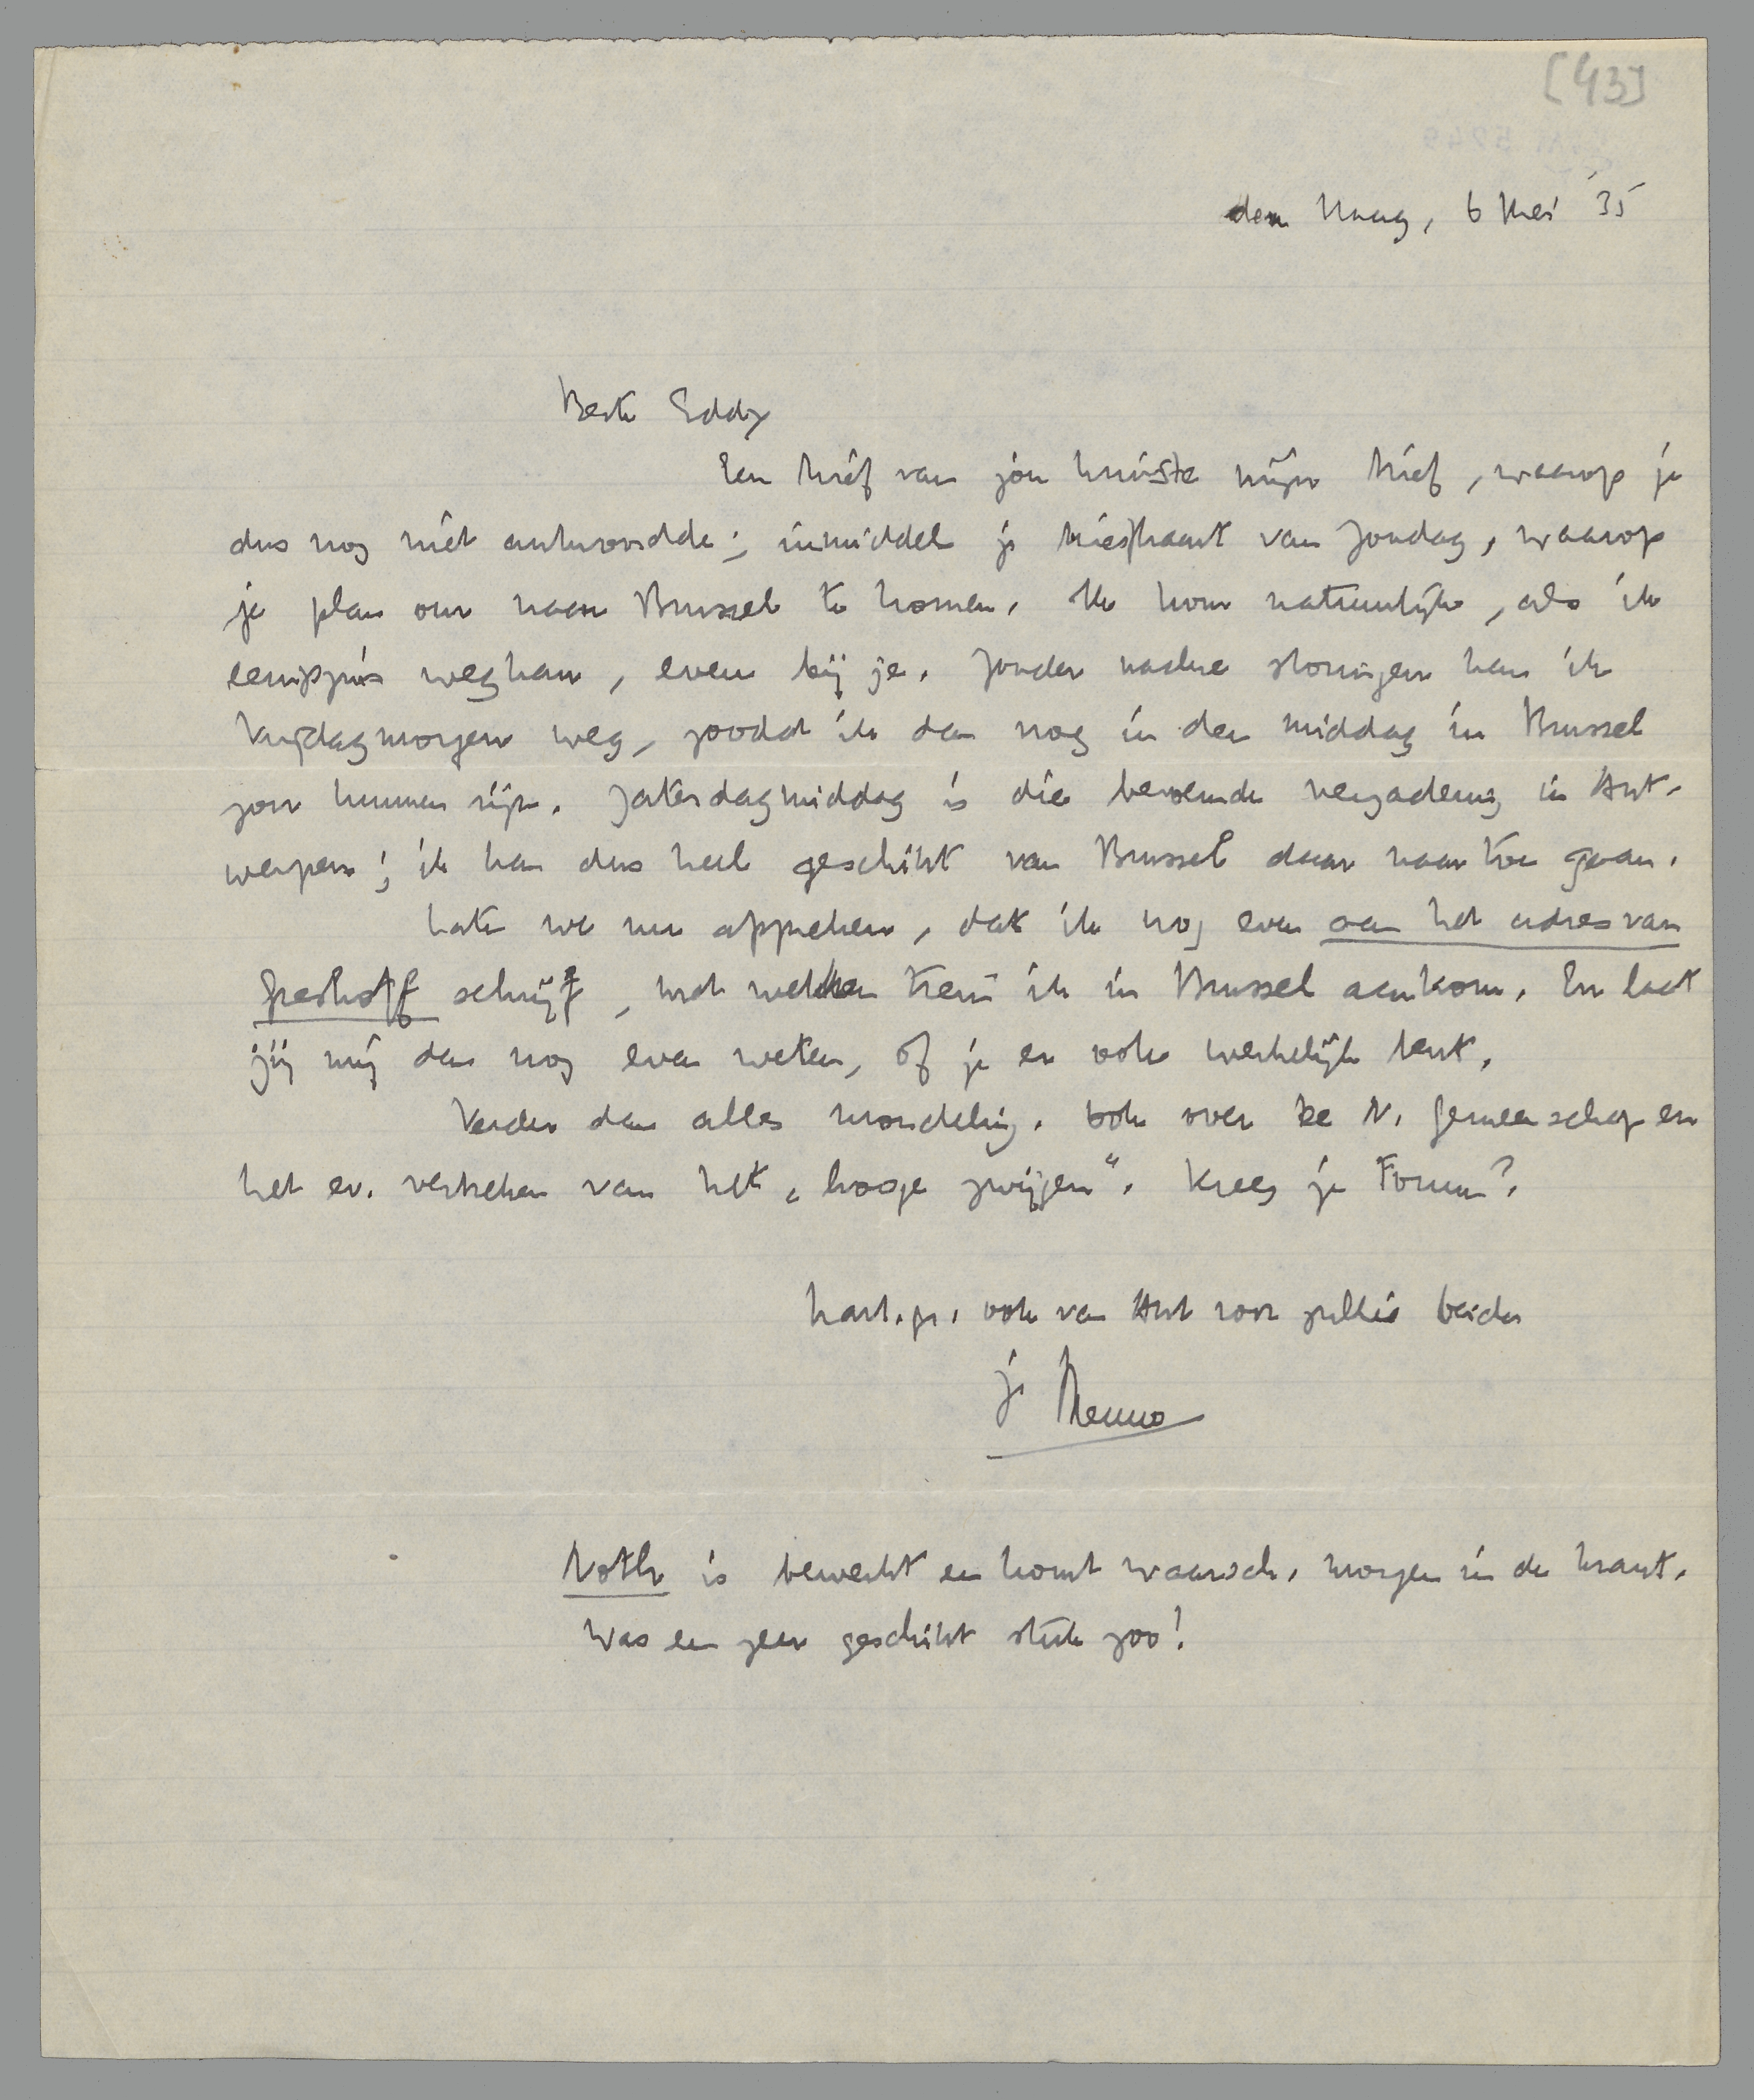 [43]
den Haag, 6 Mei '35
Beste Eddy
Een brief van jou kruiste mijn brief, waarop je
dus nog niet antwoordde; inmiddels je briefkaart van Zondag, waarop
je plan om naar Brussel te komen. Ik kom natuurlijk, als ik
eenigszins weg kan, even bij je. Zonder nadere storingen kan ik
Vrijdagmorgen weg, zoodat ik dan nog in den middag in Brussel
zou kunnen zijn. Zaterdagmiddag is die beroemde vergadering in Ant-
werpen; ik kan dus heel geschikt van Brussel daar naar toe gaan.
Laten we nu afspreken, dat ik nog even aan het adres van
Greshoff schrijf, met welken trein ik in Brussel aankom. En laat
jij mij dan nog even weten, of je er ook werkelijk bent.
Verder dan alles mondeling. Ook over De N. Gemeenschap en
het ev. verbreken van het „hooge zwijgen". Kreeg je Forum?
hart. gr. ook van Ant voor jullie beiden
je Menno
Noth is bewerkt en komt waarsch. morgen in de krant.
Was een zeer geschikt stuk zoo!